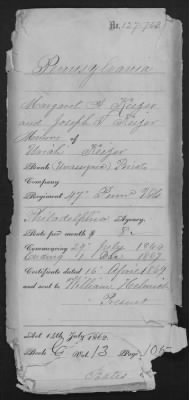 No. 127,722
Pennsylvania
Margaret A. Kieper
and Joseph F. Kieper
Minors of
Uriah Kieper
Rank (Unassigned) Privt
Company
Regiment 47" Penn Vols
Philadelphia Agency.
Rate per month $ 8.
Commencing 29" July 1864
Ending 1
1867
Certificate dated 16" April 1869
and sent to William
Present
Act 14th July 1862.
Book G Vol. 13 Page 105